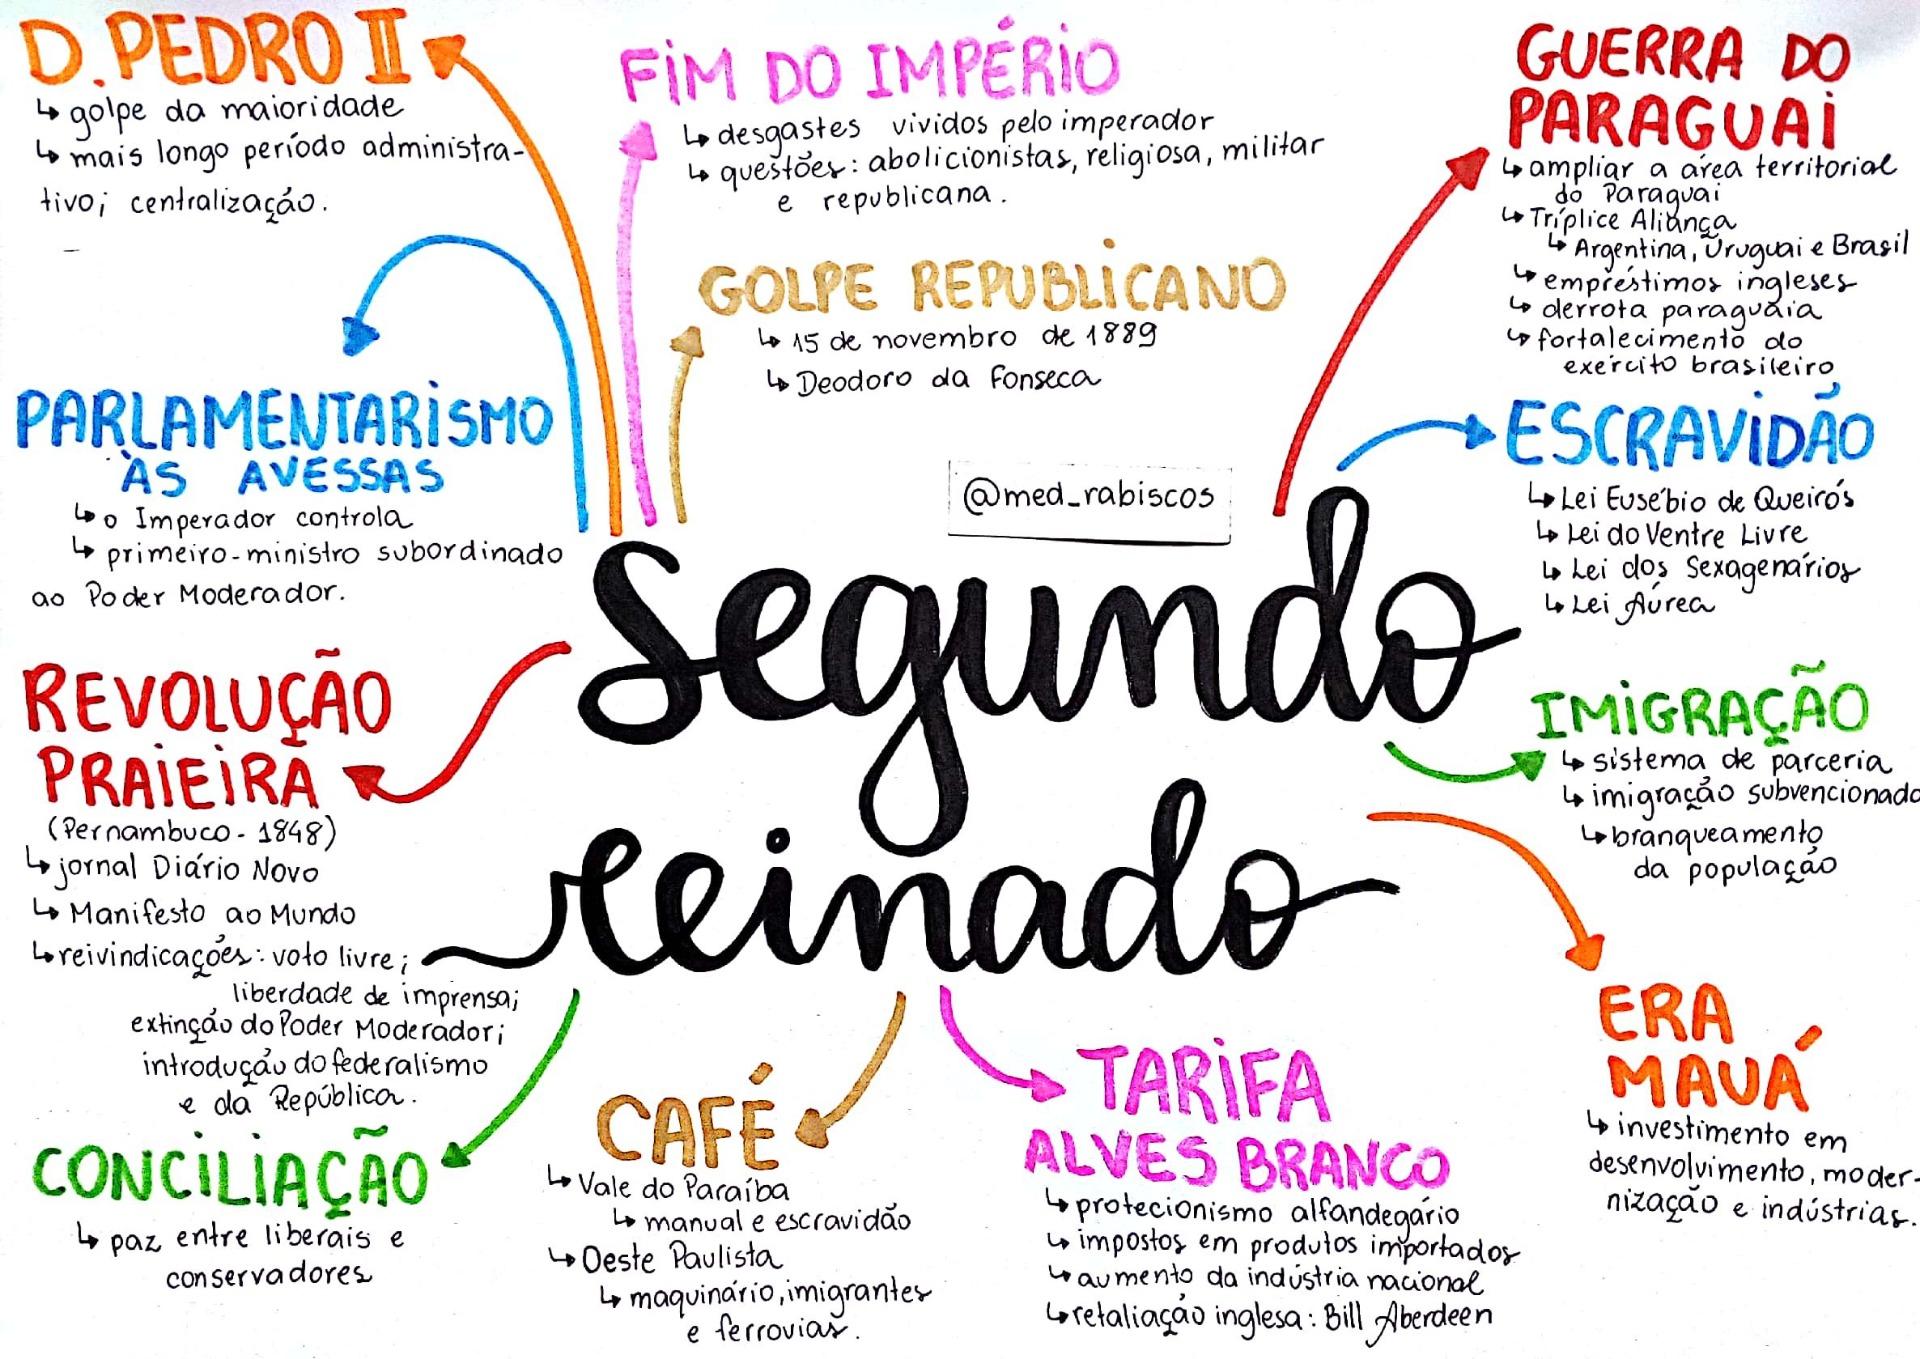 D. PEDRO II
↳ golpe da maioridade
↳ mais longo período administra-
tivo; centralização.
FIM DO IMPÉRIO
↳ desgastes vividos pelo imperador
↳ questões: abolicionistas, religiosa, militar
e republicana.
GOLPE REPUBLICANO
↳ 15 de novembro de 1889
↳ Deodoro da Fonseca
GUERRA DO
PARAGUAI
↳ ampliar a área territorial
do Paraguai
↳ Tríplice Aliança
↳ Argentina, Uruguai e Brasil
↳ empréstimos ingleses
↳ derrota paraguaia
↳ fortalecimento do
exército brasileiro
PARLAMENTARISMO
ÀS AVESSAS
↳ o Imperador controla
↳ primeiro-ministro subordinado
ao Poder Moderador.
@med_rabiscos
ESCRAVIDÃO
↳ Lei Eusébio de Queirós
↳ Lei do Ventre Livre
↳ Lei dos Sexagenários
↳ Lei Áurea
Segundo
reinado
REVOLUÇÃO
PRAIEIRA
(Pernambuco - 1848)
↳ jornal Diário Novo
↳ Manifesto ao Mundo
↳ reivindicações: voto livre;
liberdade de imprensa;
extinção do Poder Moderador;
introdução do federalismo
e da República.
IMIGRAÇÃO
↳ sistema de parceria
↳ imigração subvencionada
↳ branqueamento
da população
CONCILIAÇÃO
↳ paz entre liberais e
conservadores
CAFÉ
↳ Vale do Paraíba
↳ manual e escravidão
↳ Oeste Paulista
↳ maquinário, imigrantes
e ferrovias.
TARIFA
ALVES BRANCO
↳ protecionismo alfandegário
↳ impostos em produtos importados
↳ aumento da indústria nacional
↳ retaliação inglesa: Bill Aberdeen
ERA
MAUÁ
↳ investimento em
desenvolvimento, moder-
nização e indústrias.